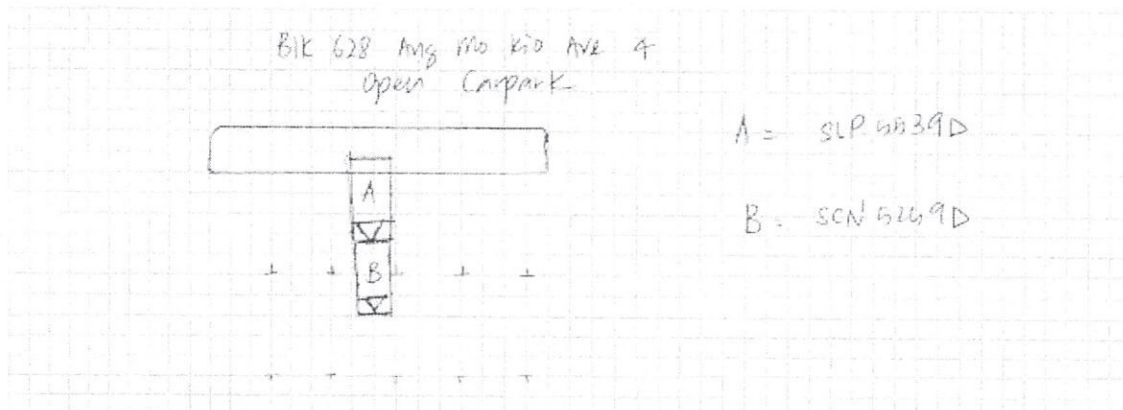 Blk 628 Ang Mo Kio Ave 4
Open Carpark
A = SLP 5539D
B = SCN 5259D
A
B